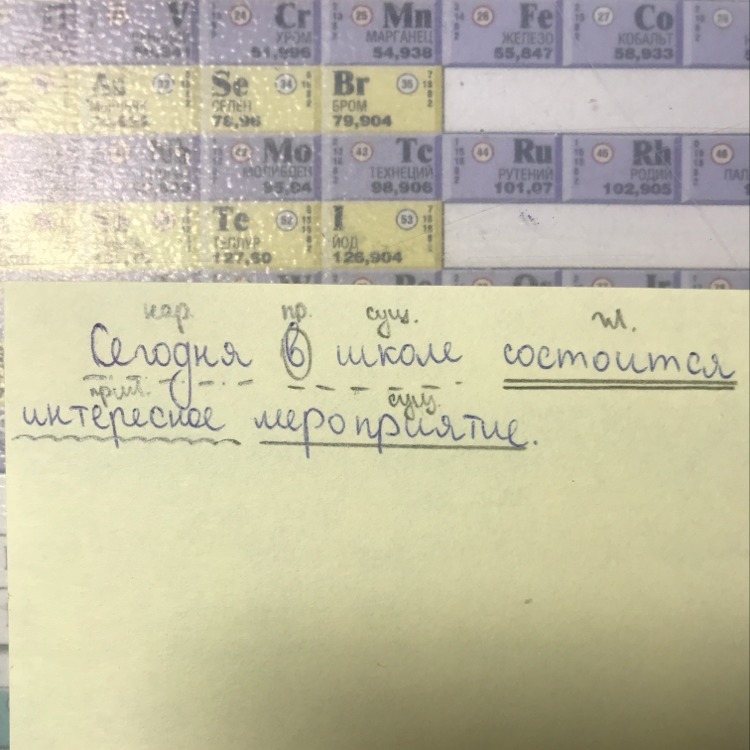 V Cr Mn Fe Co
ХРОМ МАРГАНЕЦ ЖЕЛЕЗО КОБАЛЬТ
51,996 54,938 55,847 58,933
24 25 26 27
Se Br
34 35
СЕЛЕН БРОМ
78,96 79,904
Mo Tc Ru Rh
42 43 44 45 46
МОЛИБДЕН ТЕХНЕЦИЙ РУТЕНИЙ РОДИЙ
98,906 101,07 102,905
Te I
52 53
ТЕЛЛУР ЙОД
127,60 126,904
нар. пр. сущ. гл.
Сегодня в школе состоится
прил. сущ.
интересное мероприятие.